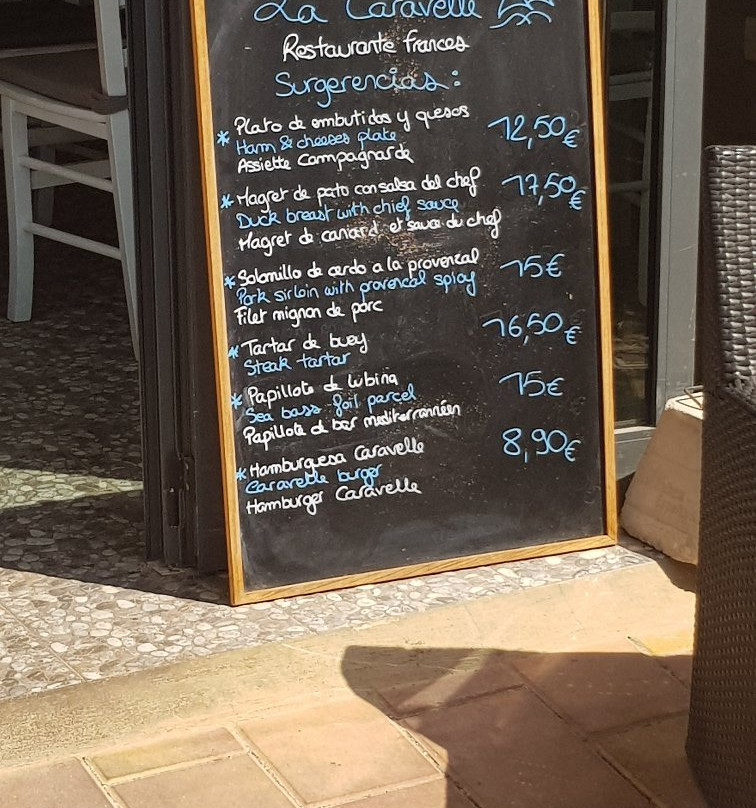 La Caravelle
Restaurante frances
Surgerencias:
* Plato de embutidos y quesos 12,50€
Ham & cheeses plate
Assiette Campagnarde
* Magret de pato con salsa del chef 17,50€
Duck breast with chief sauce
Magret de canard et sauce du chef
* Solomillo de cerdo a la provenzal 15€
Pork sirloin with provencal spicy
Filet mignon de porc
* Tartar de buey 16,50€
Steak tartar
* Papillote de lubina 15€
Sea bass foil parcel
Papillote de bar mediterrannéen
* Hamburguesa Caravelle 8,90€
Caravelle burger
Hamburger Caravelle